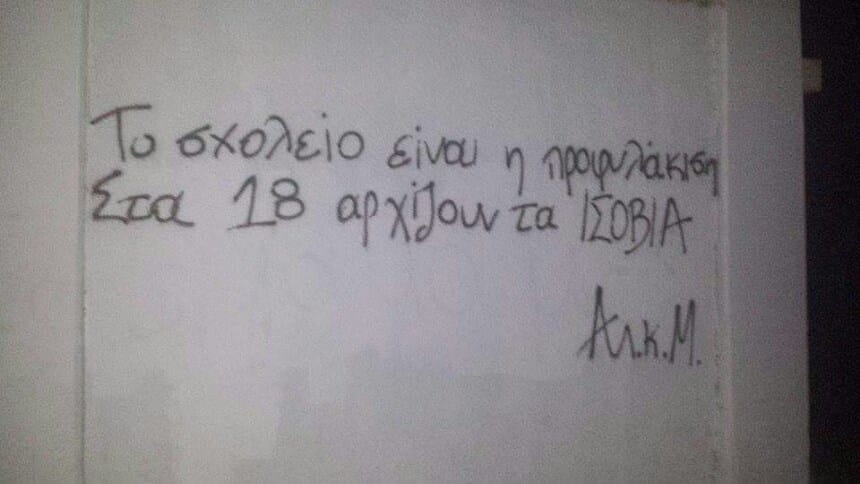 Το σχολείο είναι η προφυλάκιση
Στα 18 αρχίζουν τα ΙΣΟΒΙΑ
Αλ.κ.Μ.